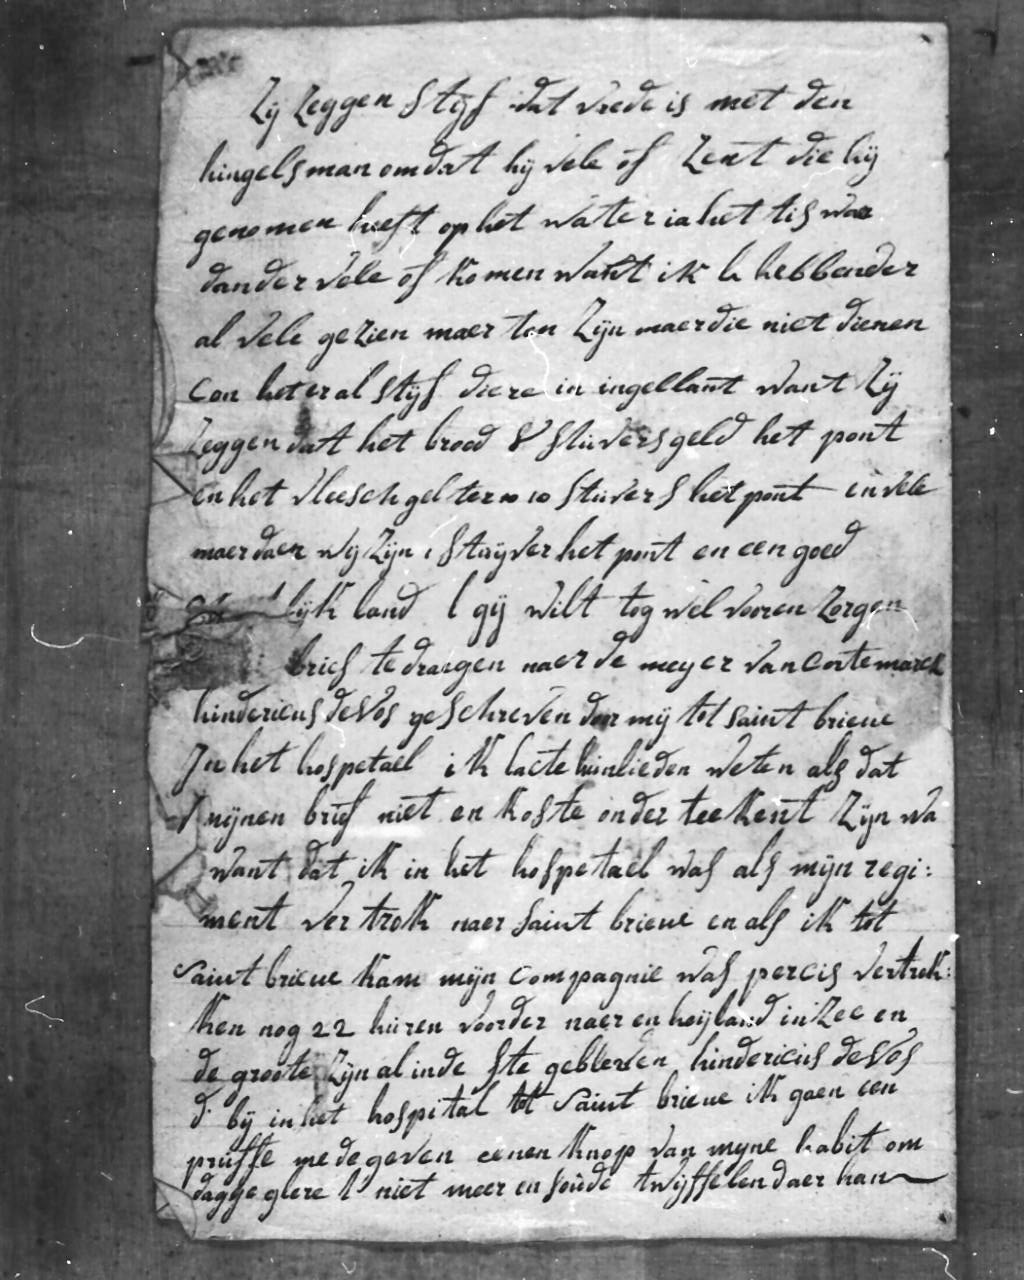 Zij zeggen stijf dat vrede is met den
hingelsman omdat hij vele of zent die hij
genomen heeft op het water ia het tis waer
dander vele of komen want ik h hebbender
al vele gezien maer ten zijn maer die niet dienen
con heter al stijf diere in ingellant want zij
zeggen dat het broed 8 stuvers geld het pont
en het vleesch gelter 10 stuvers het pont en vele
maer daer wij zijn 1 stuijver het pont en een goed
lijk land l gij wilt tog wel vooren zorgen
brief te draegen naer de meyer van Cortemarck
hindericus deVos geschreven door mij tot saint brieue
In het hospetael ik laete hunlieden weten als dat
mijnen brief niet en koste onderteekent zijn wa
want dat ik in het hospetael was als mijn regi:
ment vertrok naer saint brieue en als ik tot
saint brieue kam mijn compagnie was percis vertrek:
ken nog 22 huren voorder naer en heijland in zee en
de groote zijn al inde ste gebleven hindericus deVos
d bij in het hospital tot saint brieue ik gaen een
pruffe medegeven eenen knop van myne habit om
dagge glere l niet meer en soude twijffelen daer han